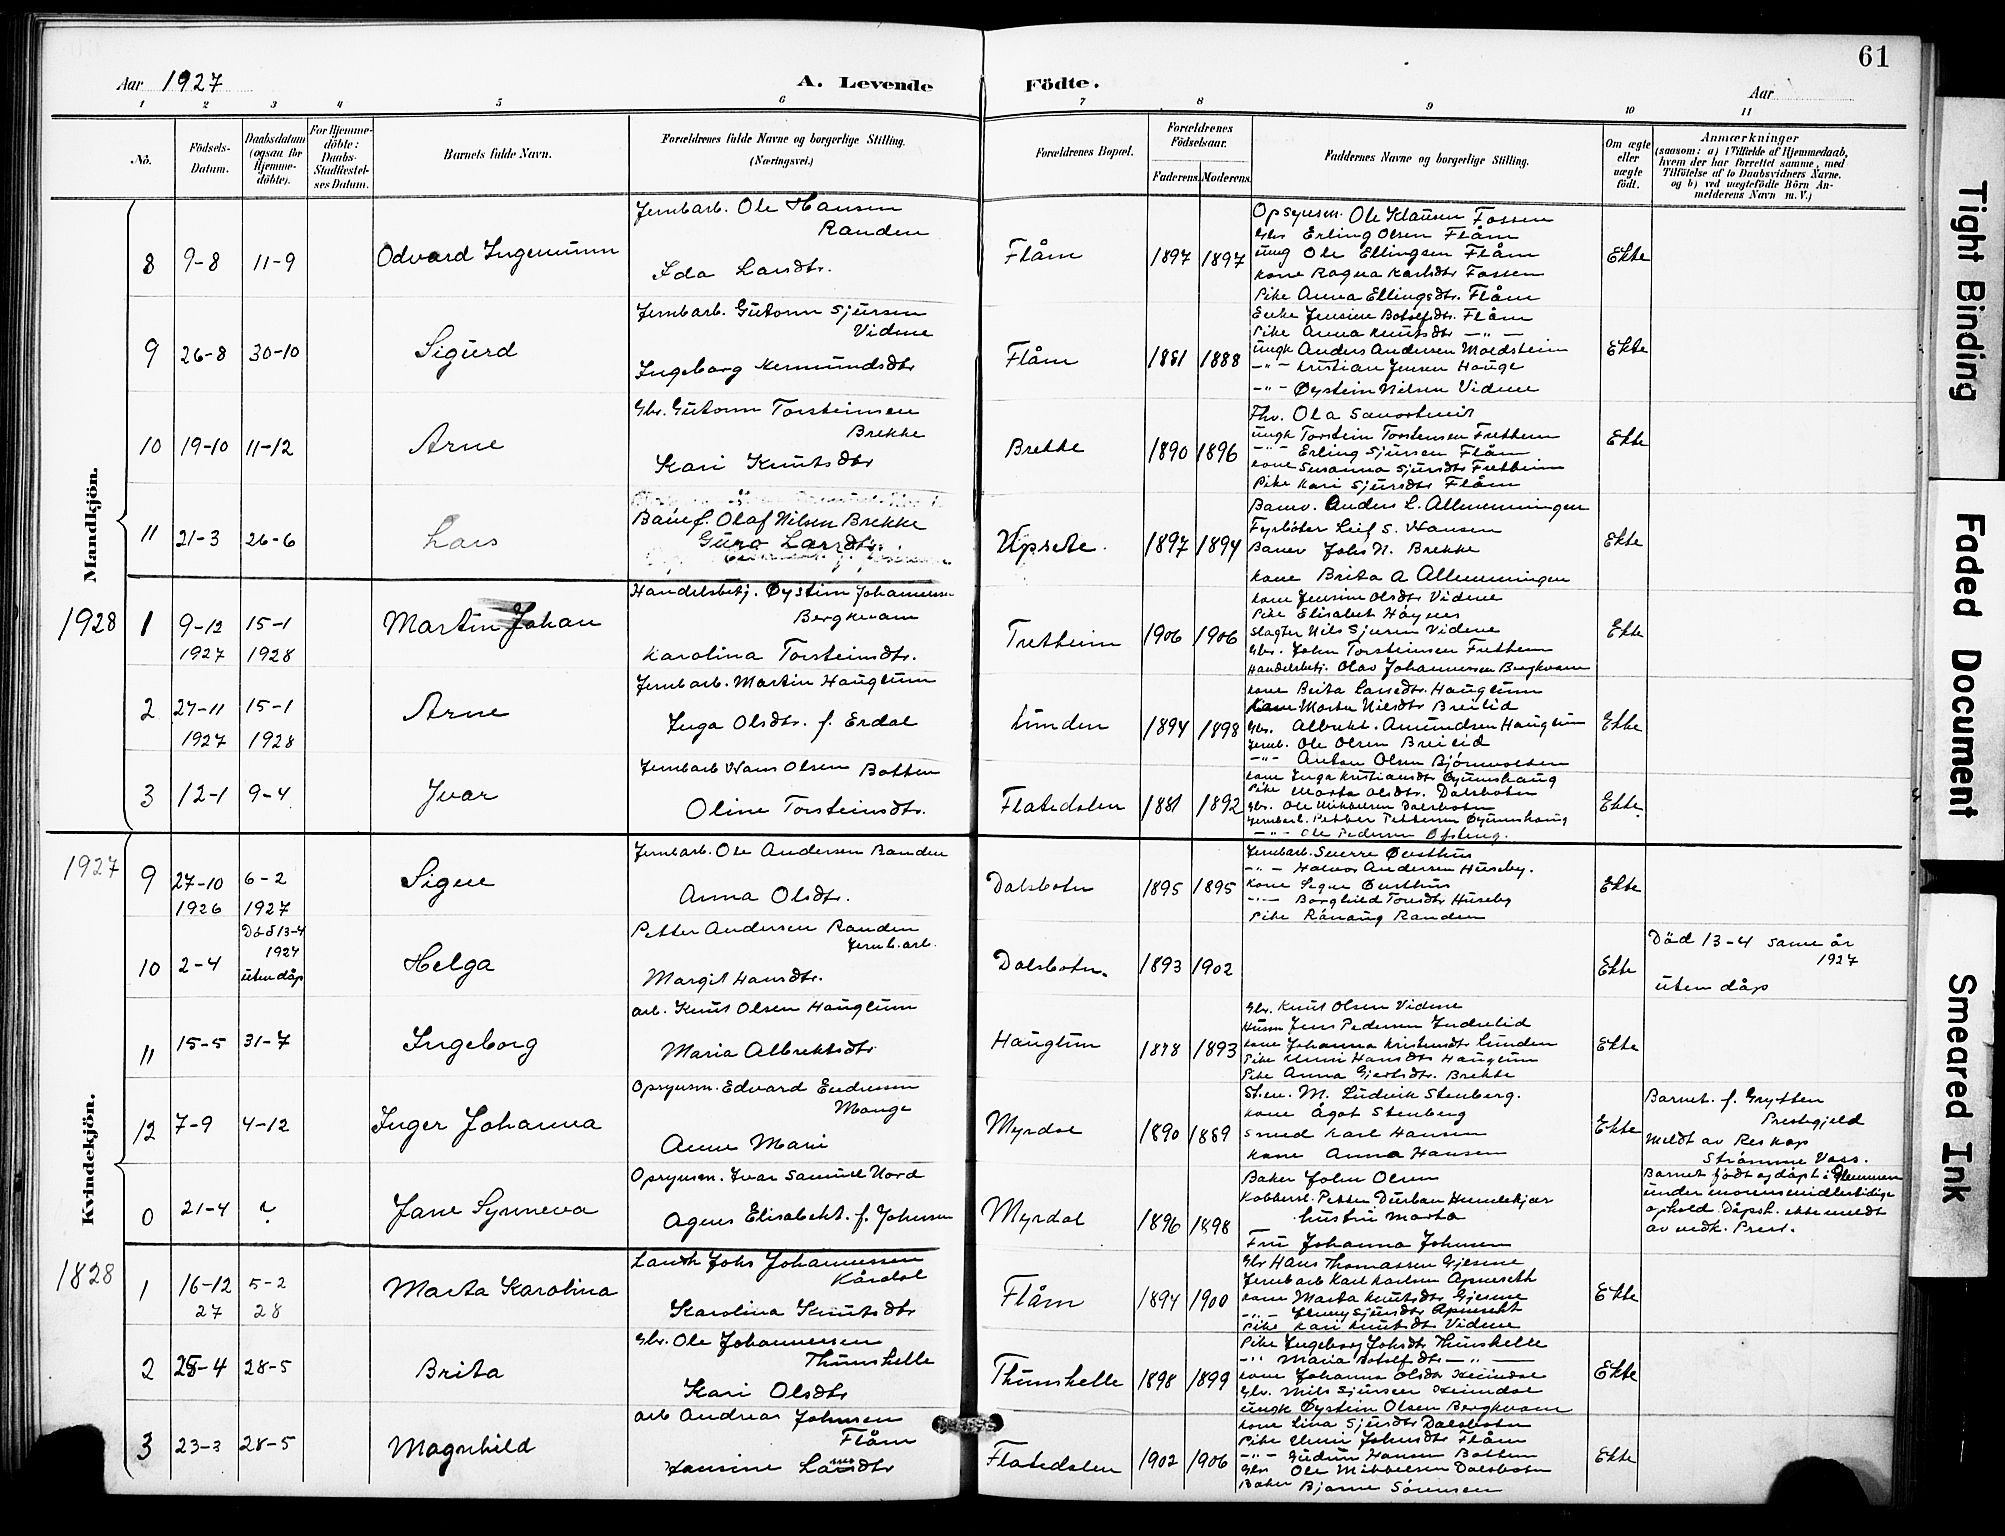 61
Aar 1927
A. Levende Födte.
Aar
1 2 3 4 5 6 7 8 9 10 11
No.
Födsels-Datum.
Daabsdatum (ogsaa for Hjemme-döbte).
For Hjemme-döbte: Daabs-Stadfæstel-ses Datum.
Barnets fulde Navn.
Forældrenes fulde Navne og borgerlige Stilling. (Næringsvei.)
Forældrenes Bopæl.
Forældrenes Födselsaar.
Faderens. Moderens.
Faddernes Navne og borgerlige Stilling.
Om ægte eller uægte födt.
Anmærkninger
(saasom: a) i Tilfælde af Hjemmedaab,
hvem der har forrettet samme, med
Tilföielse af to Daabsvidners Navne.
og b) ved uægtefödte Börn An-
melderens Navn m. V.)
Mandkjön.
8 9-8 11-9 Odvard Ingemunn
Jernbarb. Ole Hansen
Randen
Ida Larsdtr.
Flåm 1897 1897
Opsynsm. Ole Klausen Fossen
Gbr Erling Olsen Flåm
ung Ole Ellingsen Flåm
kone Ragna Karlsdtr Fossen
Pike Anna Ellingsdtr. Flåm
Ekte
9 26-8 30-10 Sigurd
Jernbarb. Gutorm Sjursen
Vidme
Ingeborg Mermundsdtr
Flåm 1881 1888
Enke Jensine Botolfsdtr. Flåm
Pike Anna Knutsdtr -"-
ungk Anders Andersen Moldstein
-"- Kristian Jensen Hauge
-"- Øystein Nilsen Vidme
Ekte
10 19-10 11-12 Arne
Gbr. Gutorm Torsteinsen
Brekke
Kari Knutsdtr
Brekke 1890 1896
Fhv. Ola
ungk Torstein Torstensen Fretheim
-"- Erling Sjursen Flåm
kone Susanna Sjursdtr Fretheim
Pike Kari Sjursdtr Flåm
Ekte
11 21-3 26-6 Lars
Banef. Olaf Nilsen Brekke
Guro Larsdtr.
Upsete. 1897 1894
Banv. Anders L. Allmenningen
Fyrbøter Leif S. Hansen
Banev Johs N. Brekke
kone Brita A Allmenningen
Ekte
1928
1 9-12 1927 15-1 1928 Martin Johan
Handelsbetj. Øystein Johannessen
Bergkvam
Karolina Torsteinsdtr.
Fretheim 1906 1906
kone Jensine Olsdtr Vidme
Pike Elisabet Høynes
Slagter Nils Sjursen Vidme
Gbr. John Torsteinsen Fretheim
Handelsbetj. Olav Johannessen Bergkvam
Ekte
2 27-11 1927 15-1 1928 Arne
Jernbarb. Martin Haugtum
Inga Olsdtr. f. Erdal
Lunden 1894 1898
kone Brita Larsdtr. Haugtum
Kone Marta Nilsdtr Breilid
Gbr. Albrikt. Amundsen Haugtum
Jernb. Ole Olsen Breilid
-"- Anton Olsen
Ekte
3 12-1 9-4 Ivar
Jernbarb Hans Olsen Botten
Oline Torsteinsdtr.
Flatedalen 1881 1892
kone Inga Kristiansdtr Gjumshaug
Pike Marta Olsdtr. Dalsbotn
Gbr. Ole Mikkelsen Dalsbotn
Jernbarb. Petter Pettersen Gjumshaug
-"- Ole Pedersen
Ekte
Kvindekjön.
1927
9 27-10 1926 6-2 1927 Signe
Jernbarb. Ole Andersen Randen
Anna Olsdtr.
Dalsbotn 1895 1895
Jernbarb. Sverre Østhus
-"- Halvor Andersen Huseby.
kone Signe Østhus
-"- Borghild Toresdtr Huseby
Pike Rånaug Randen
Ekte
10 2-4 Død 13-4 1927 uten dåp Helga
Petter Andersen Randen
Jernb.arb.
Margit Hansdtr.
Dalsbotn. 1893 1902
Ekte
Död 13-4 same år
1927
uten dåp
11 15-5 31-7 Ingeborg
arb. Knut Olsen Haugtum
Maria Albrektsdtr
Haugtum 1878 1893
Gbr. Knut Olsen Vidme
Husm Jens Pedersen Indrelid
kone Johanna Kristensdtr Lunden
Pike Unni Hansdtr Haugtum
Pike Anna Gjertsdtr. Brekke
Ekte
12 7-9 4-12 Inger Johanna
Opsynsm. Edvard Endresen
Mange
Anne Marie
Myrdal 1890 1889
St.em. M. Ludvik Stenberg.
kone Ågot Stenberg
Smed Karl Hansen
kone Anna Hansen
Ekte
Barnet. f. Grytten
Prestegjeld
meldt av Res kap
Strømme Voss.
0 21-4 ? Jane Synneva
Opsynsm. Ivar Samuel Nord
Agnes Elisabeht. f. Johnsen
Myrdal 1896 1898
Baker John Olsen
Kobbersl. Petter Durban Humlekjær
hustru Marta
Fru Johanna Johnsen
Barnet født og døpt i Glemmen
under morens midlertidige
ophold. Dåpsh. ikke meldt
av vedk. Prest.
1828
1 16-12 27 5-2 28 Marta Karolina
Landh Johs Johannessen
Kårdal
Karolina Knutsdtr
Flåm 1894 1900
Gbr Hans Thomassen Gjesme
Jernbarb Karl Karlsen Apneseth
kone Marta Knutsdtr Gjesme
-"- Jenny Sjursdtr Apneseht
Pike Kari Knutsdtr Vidme
Ekte
2 25-4 28-5 Brita
Gbr. Ole Johannessen
Thunshelle
Kari Olsdtr
Thunshelle 1898 1899
Pike Ingeborg Johsdtr Thunshelle
-"- Maria Botolfsdtr -"-
kone Johanna Olsdtr Heindal
Gbr. Nils Sjursen Heindal
ungk Øystein Olsen Bergkvam
Ekte
3 23-3 28-5 Magnhild
arb Andreas Johnsen
Flåm
Hansine Larsdtr
Flatedalen 1902 1906
kone Lina Sjursdtr Dalsbotn
Pike Unni Johnsdtr Flåm
-"- Gudrun Hansen Botten
Gbr Ole Mikkelsen Dalsbotn
Baker Bjarne Sørensen
Ekte
Tight Binding
Faded Document
Smeared Ink